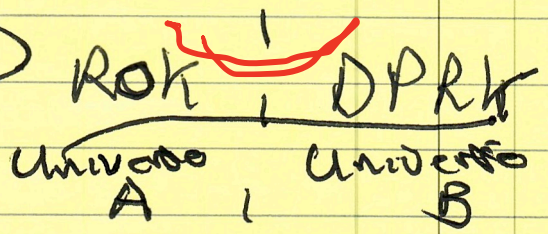 ROK DPRK
Universo Universo
A B